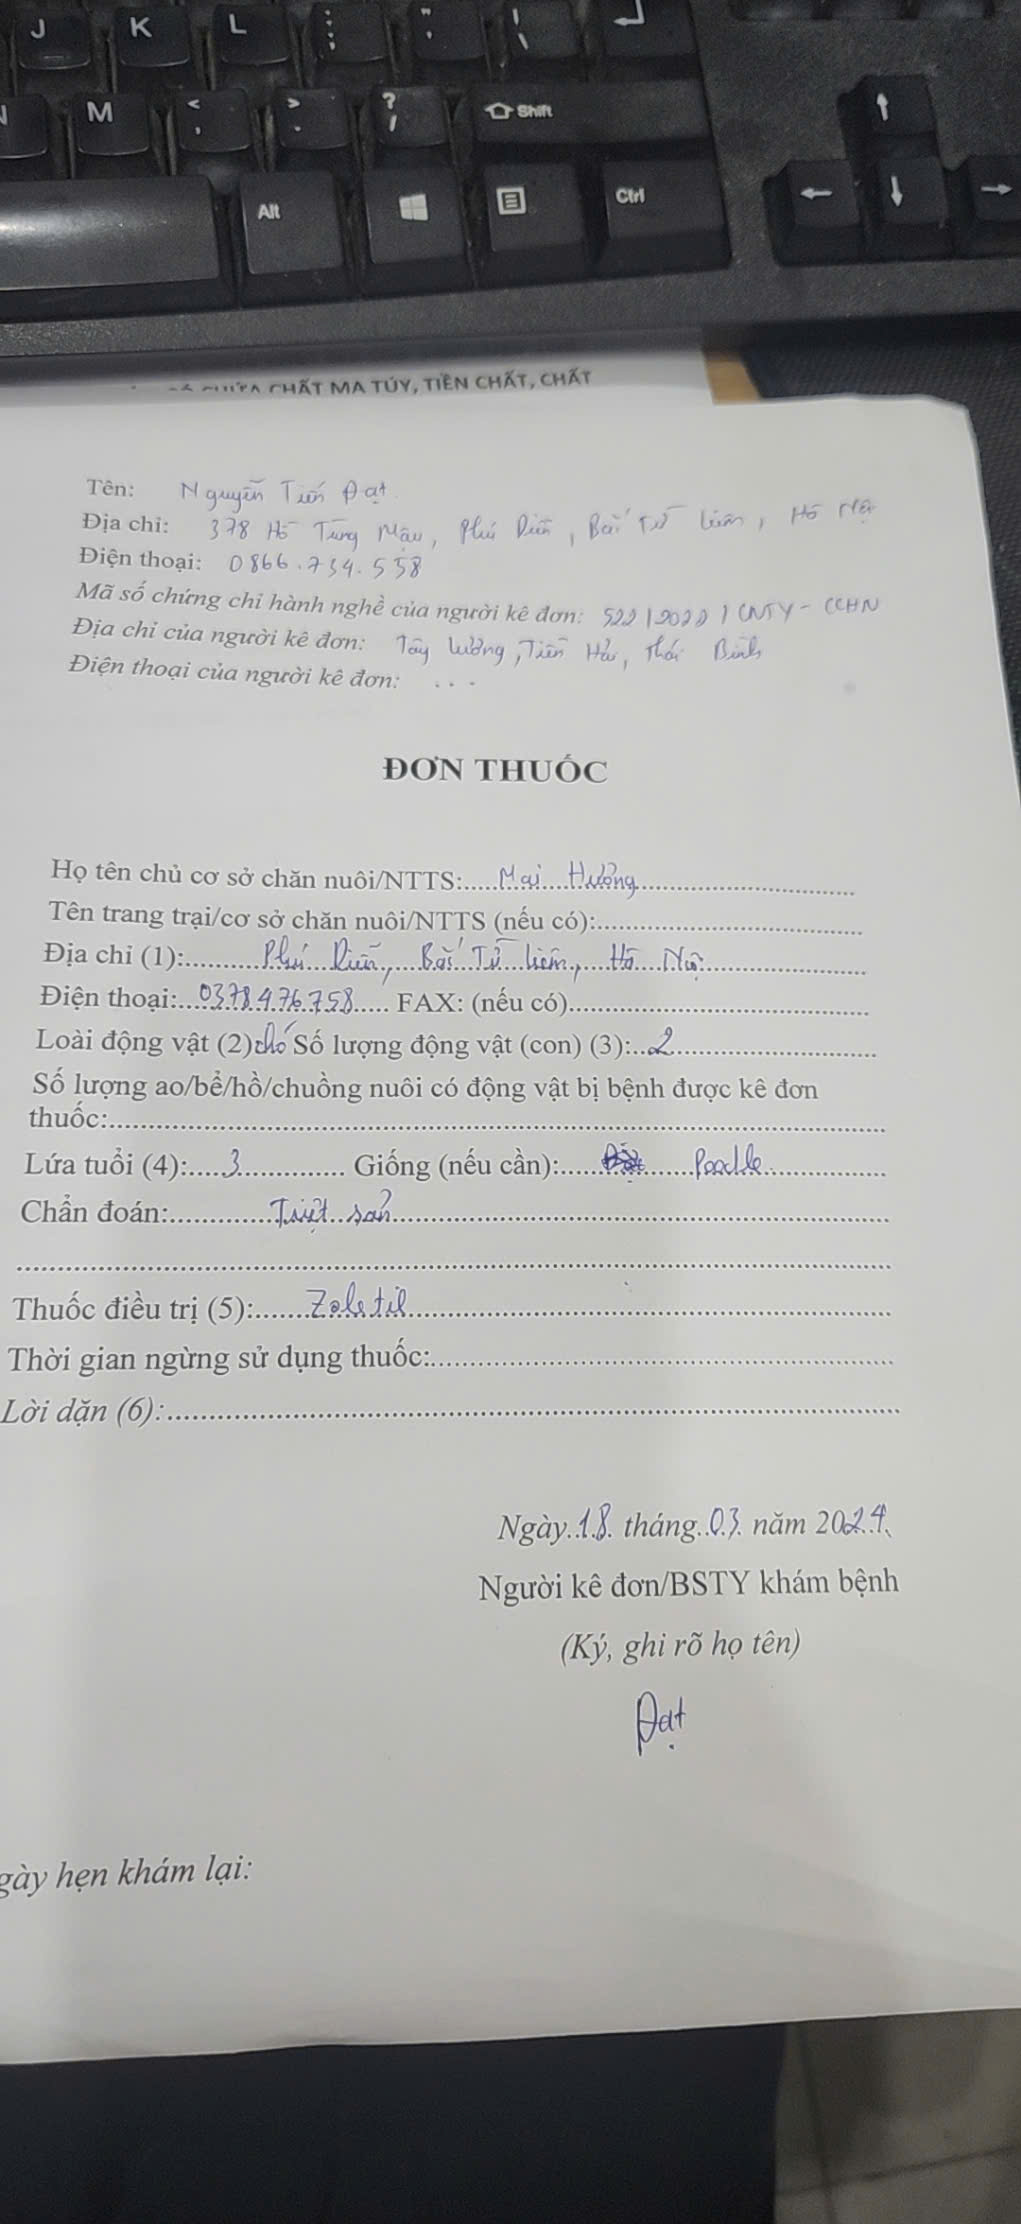 J K L : ; " ' | \
M < , > . ? / Shift
Alt Ctrl
CHẤT MA TÚY, TIỀN CHẤT, CHẤT
Tên: Nguyễn Tiến Đạt
Địa chỉ: 378 Hồ Tùng Mậu, Phú Diễn, Bắc Từ Liêm, Hà Nội
Điện thoại: 0866.734.558
Mã số chứng chỉ hành nghề của người kê đơn: CNTY - CCHN
Địa chỉ của người kê đơn: Tây Lương, Tiền Hải, Thái Bình
Điện thoại của người kê đơn: . . .
ĐƠN THUỐC
Họ tên chủ cơ sở chăn nuôi/NTTS: Mai Hường
Tên trang trại/cơ sở chăn nuôi/NTTS (nếu có):
Địa chỉ (1): Phú Diễn, Bắc Từ Liêm, Hà Nội
Điện thoại: 0378.476.758 FAX: (nếu có)
Loài động vật (2) chó Số lượng động vật (con) (3): 2
Số lượng ao/bể/hồ/chuồng nuôi có động vật bị bệnh được kê đơn
thuốc:
Lứa tuổi (4): 3 Giống (nếu cần): Poodle
Chẩn đoán: Triệt sản
Thuốc điều trị (5): Zoletil
Thời gian ngừng sử dụng thuốc:
Lời dặn (6):
Ngày 18 tháng 03 năm 2024
Người kê đơn/BSTY khám bệnh
(Ký, ghi rõ họ tên)
Đạt
gày hẹn khám lại: